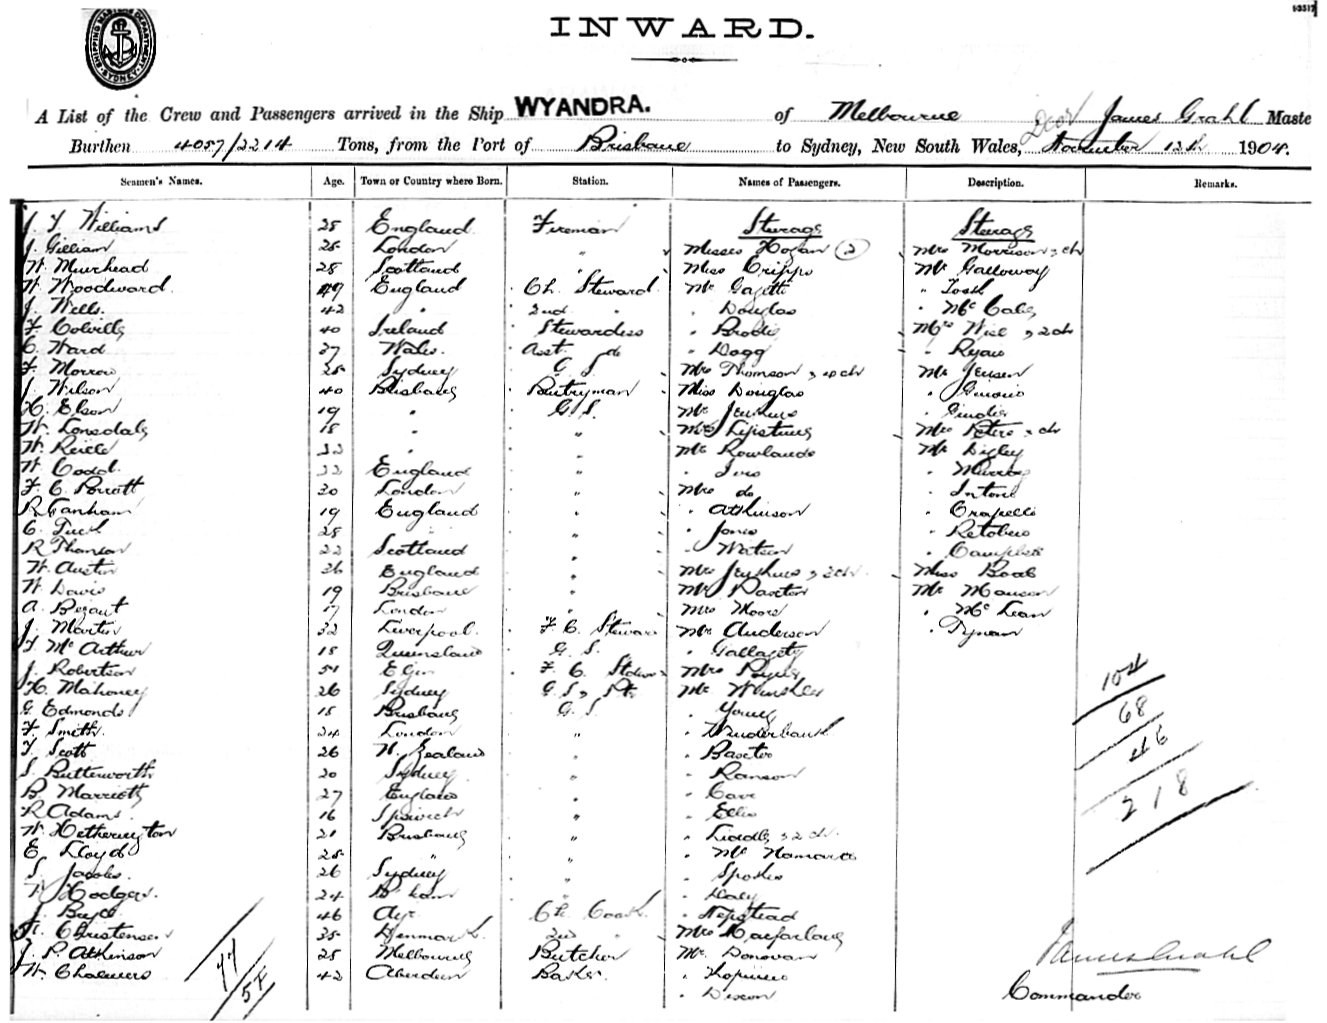 SHIPPING MASTERS DEPARTMENT SYDNEY
INWARD.
A List of the Crew and Passengers arrived in the Ship WYANDRA. of Melbourne James Grahl Maste
Burthen 4057/2214 Tons, from the Port of Brisbane to Sydney, New South Wales, November 12th 1904.
Seamen's Names. Age. Town or Country where Born. Station. Names of Passengers. Description. Remarks.
Steerage Steerage
J. Y. Williams 25 England Fireman
J. Gilliam 25 London " Misses Hogan (2) Mrs Morrison & ch
W. Muirhead 28 Scotland " Miss Cripps Mr Galloway
W. Woodward 49 England Ch. Steward Mr " Tosh
J. Wells. 42 " 2nd " " Douglas " McCabe
F. Colville 40 Ireland Stewardess " Brodie Mrs Wise & 2 ch
C. Ward 37 Wales. Asst. do " Dogg " Ryan
F. Morrow 25 Sydney G. S. Mrs Thomson & 4 ch Mr Jensen
J. Wilson 40 Brisbane Pantryman Miss Douglas
H. Elson 19 " G. S. Mr Jenkins
W. Lonsdale 18 " " Mrs Peters & ch
W. 22 " " Mr Rowlands Mr Digley
W. Codd. 22 England " " Ives " Murray
F. C. Parrott 20 London " Mrs do
R. Canham 19 England " " Atkinson
C. Tuck 25 " " " Jones
R. Thomson 22 Scotland " " Watson " Campbell
W. Austin 26 England " Mrs Jenkins & 2 ch. Miss Boab
W. Davis 19 Brisbane " Mr Paxton Mr Manson
A. Bezant 17 London " Mrs Moore " McLean
J. Martin 32 Liverpool. F. C. Steward Mr Anderson " Tynan
T. McArthur 18 Queensland G. S. " Gallagety
J. Robertson 51 Elgin F. C. Stewar Mrs
H. Mahoney 26 Sydney G. S, Pts. Mr 104
G. Edmonds 18 Brisbane G. S. " Young 68
F. Smith. 24 London " " 46
T. Scott 26 N. Zealand " " Baxter
S. Butterworth 20 Sydney " " Ranson 218
B. Marriott 27 England " " Cave
R. Adams. 16 Ipswich " " Ellis
W. Hetherington 21 Brisbane " " Liddle & 2 ch.
E. Lloyd 25 " " " McNamara
S. Jacobs. 26 Sydney " " Spokes
Hodges. 24 " " Daly
J. Boyd 46 Ayr Ch. Cook " Hepstead
Christensen 35 Denmark. 2nd " Mrs Macfarlane
J. P. Atkinson 25 Melbourne Butcher Mr Donovan James Grahl
W. Chalmers 42 Aberdeen Baker. " Hopkins
77/54 " Dixon Commander